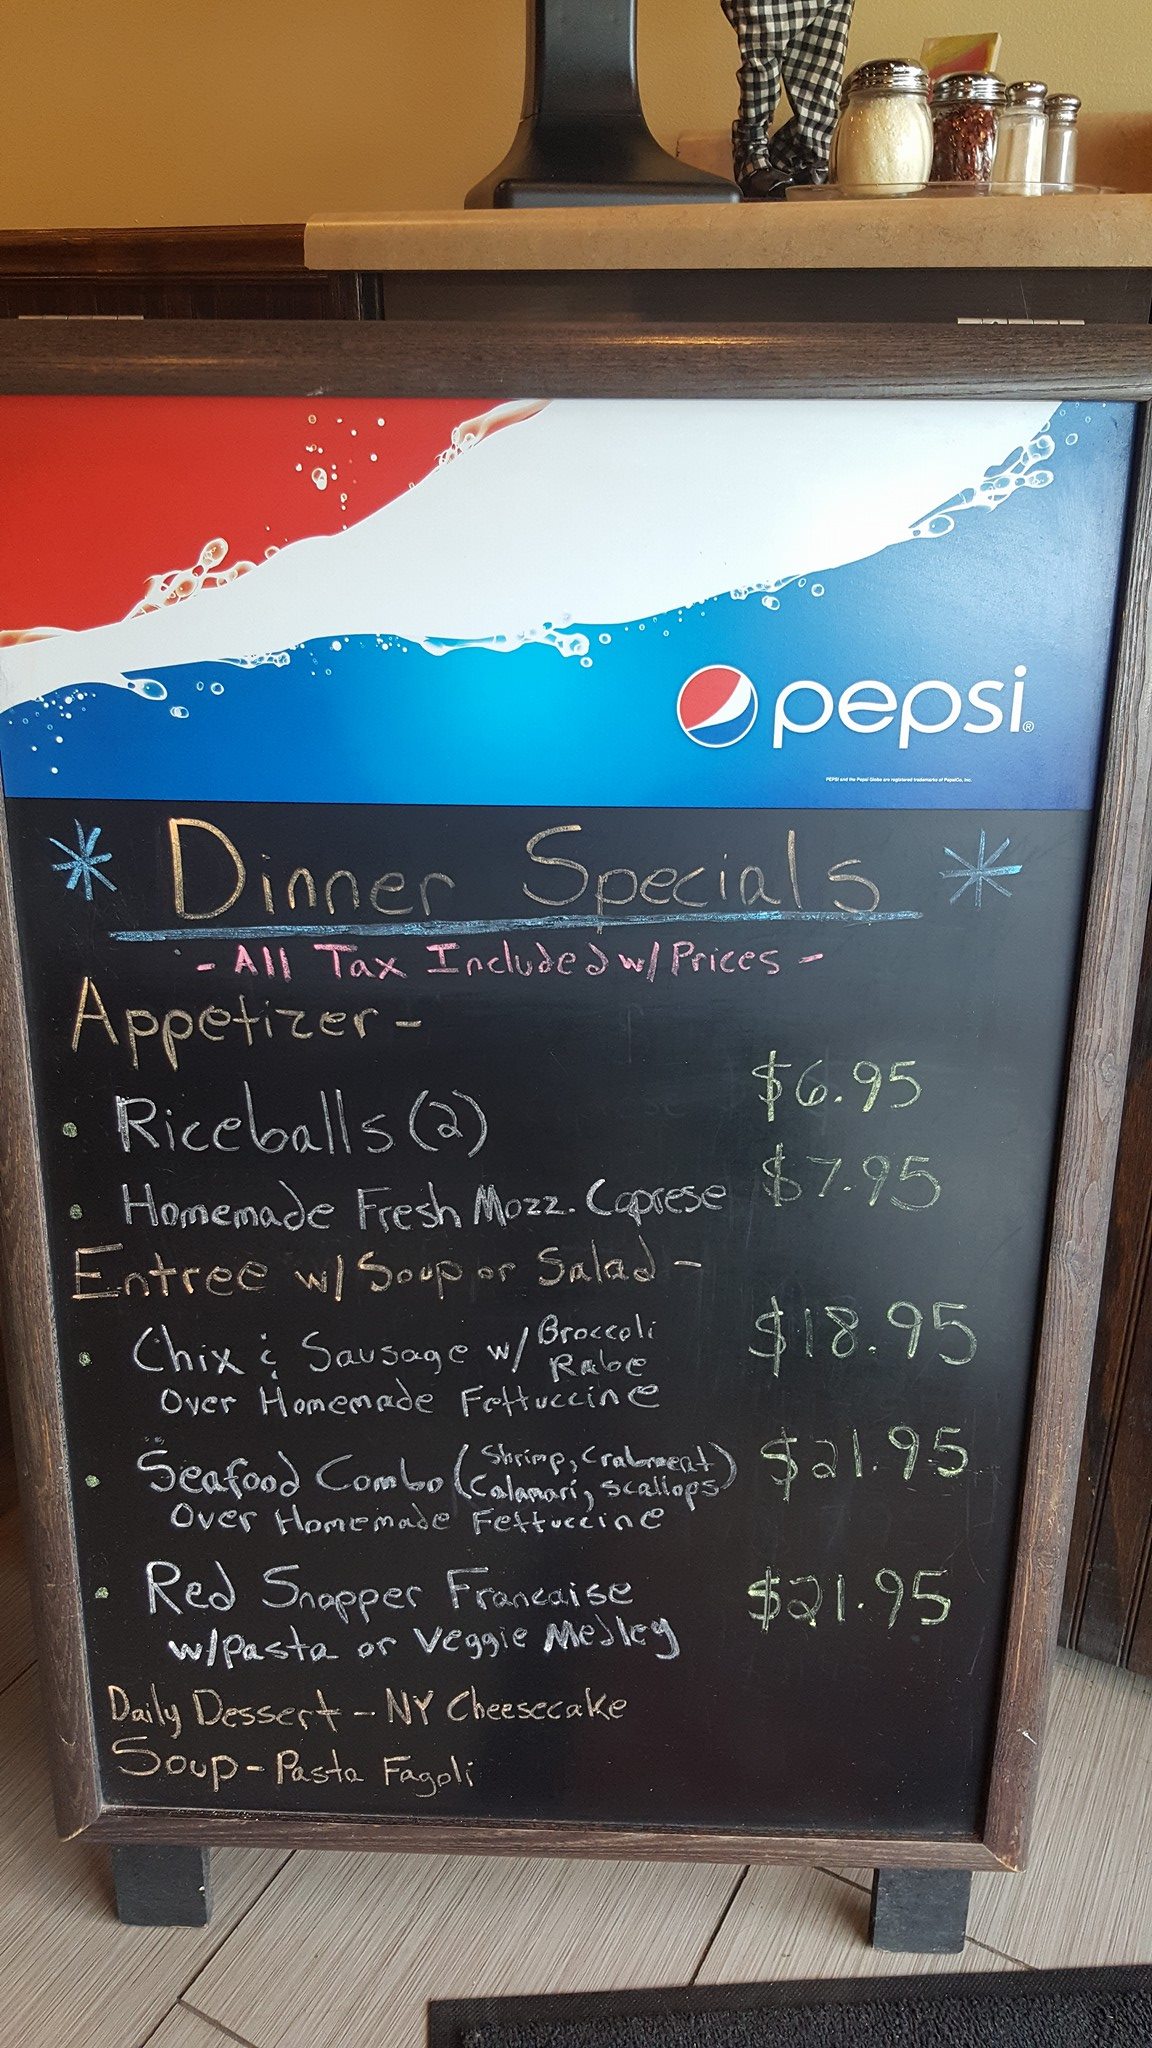 pepsi®
PEPSI and the Pepsi Globe are registered trademarks of PepsiCo, Inc.
Dinner Specials
- All Tax Included w/ Prices -
Appetizer -
• Riceballs (2) $6.95
• Homemade Fresh Mozz. Caprese $7.95
Entree w/ Soup or Salad -
• Chix & Sausage w/ Broccoli Rabe $18.95
Over Homemade Fettuccine
• Seafood Combo (Shrimp, Crabmeat Calamari, Scallops) $21.95
Over Homemade Fettuccine
• Red Snapper Francaise $21.95
w/Pasta or Veggie Medley
Daily Dessert - NY Cheesecake
Soup - Pasta Fagoli